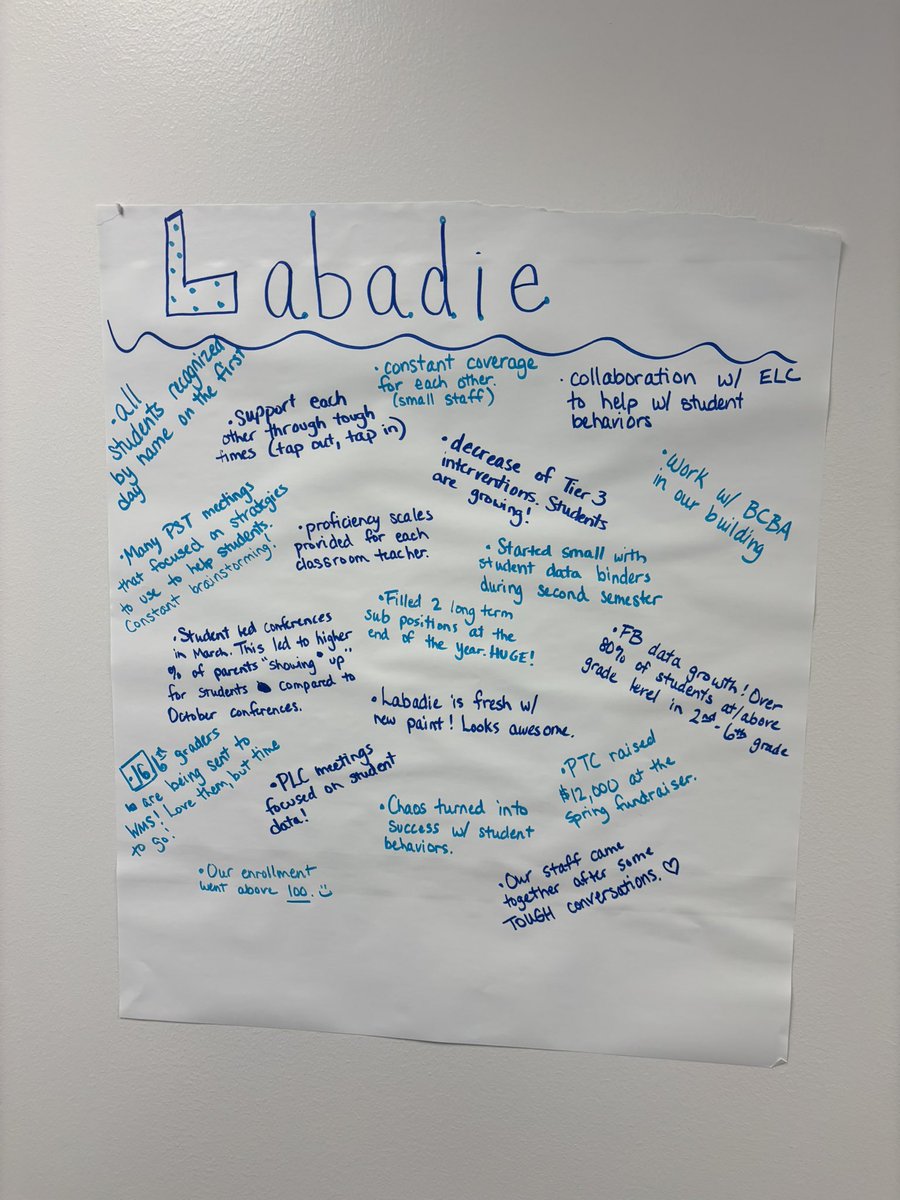 Labadie
• all
students recognized
by name on the first
day
• support each
other through tough
times (tap out, tap in)
• constant coverage
for each other.
(small staff)
• collaboration w/ ELC
to help w/ student
behaviors
• decrease of Tier 3
interventions. Students
are growing!
• Work w/ BCBA
in our building
• Many PST meetings
that focused on strategies
to use to help students.
Constant brainstorming!
• proficiency scales
provided for each
classroom teacher.
• Started small with
student data binders
during second semester
• Filled 2 long term
sub positions at the
end of the year. HUGE!
• Student led conferences
in March. This led to higher
% of parents "showing" up"
for students compared to
October conferences.
• FB data growth! Over
80% of students at/above
grade level in 2nd-6th grade
• Labadie is fresh w/
new paint! Looks awesome.
• 16 6th graders
are being sent to
WMS! Love them, but time
to go!
• PLC meetings
focused on student
data!
• Chaos turned into
success w/ student
behaviors.
• PTC raised
$12,000 at the
spring fundraiser.
• Our enrollment
went above 100. :)
• Our staff came
together after some
TOUGH conversations. ♡